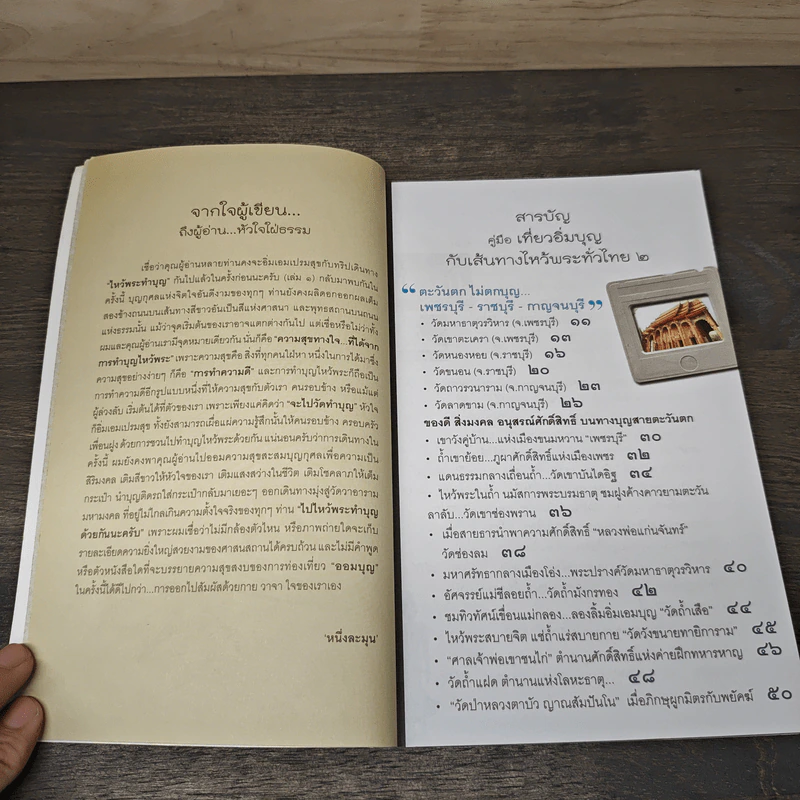 จากใจผู้เขียน...
ถึงผู้อ่าน...หัวใจใฝ่ธรรม
เชื่อว่าคุณผู้อ่านหลายท่านคงจะอิ่มเอมเปรมสุขกับทริปเดินทาง
"ไหว้พระทำบุญ" กันไปแล้วในครั้งก่อนนะครับ (เล่ม ๑) กลับมาพบกันใน
ครั้งนี้ บุญกุศลแห่งจิตใจอันดีงามของทุกๆ ท่านยังคงผลิดอกออกผลเต็ม
สองข้างถนนบนเส้นทางสีขาวอันเป็นสีแห่งศาสนา และพุทธสถานบนถนน
แห่งธรรมนั้น แม้ว่าจุดเริ่มต้นของเราอาจแตกต่างกันไป แต่เชื่อหรือไม่ว่าทั้ง
ผมและคุณผู้อ่านเรามีจุดหมายเดียวกัน นั่นก็คือ "ความสุขทางใจ...ที่ได้จาก
การทำบุญไหว้พระ" เพราะความสุขคือ สิ่งที่ทุกคนใฝ่หา หนึ่งในการได้มาซึ่ง
ความสุขอย่างง่ายๆ ก็คือ "การทำความดี" และการทำบุญไหว้พระก็ถือเป็น
การทำความดีอีกรูปแบบหนึ่งที่ให้ความสุขกับตัวเรา คนรอบข้าง หรือแม้แต่
ผู้ล่วงลับ เริ่มต้นได้ที่ตัวของเรา เพราะเพียงแค่คิดว่า "จะไปวัดทำบุญ" หัวใจ
ก็อิ่มเอมเปรมสุข ทั้งยังสามารถเผื่อแผ่ความรู้สึกนั้นให้คนรอบข้าง ครอบครัว
เพื่อนฝูง ด้วยการชวนไปทำบุญไหว้พระด้วยกัน แน่นอนครับว่าการเดินทางใน
ครั้งนี้ ผมยังคงพาคุณผู้อ่านไปออมความสุขสะสมบุญกุศลเพื่อความเป็น
สิริมงคล เติมสีขาวให้หัวใจของเรา เติมแสงสว่างในชีวิต เติมโชคลาภให้เต็ม
กระเป๋า นำบุญติดรถใส่กระเป๋ากลับมาเยอะๆ ออกเดินทางมุ่งสู่วัดวาอาราม
มหามงคล ที่อยู่ไม่ไกลเกินความตั้งใจจริงของทุกๆ ท่าน "ไปไหว้พระทำบุญ
ด้วยกันนะครับ" เพราะผมเชื่อว่าไม่มีกล้องตัวไหน หรือภาพถ่ายใดจะเก็บ
รายละเอียดความยิ่งใหญ่สวยงามของศาสนสถานได้ครบถ้วน และไม่มีคำพูด
หรือตัวหนังสือใดที่จะบรรยายความสุขสงบของการท่องเที่ยว "ออมบุญ"
ในครั้งนี้ได้ดีไปกว่า...การออกไปสัมผัสด้วยกาย วาจา ใจของเราเอง
'หนึ่งละมุน'
สารบัญ
คู่มือ เที่ยวอิ่มบุญ
กับเส้นทางไหว้พระทั่วไทย ๒
“ ตะวันตก ไม่ตกบุญ...
เพชรบุรี - ราชบุรี - กาญจนบุรี ”
• วัดมหาธาตุวรวิหาร (จ.เพชรบุรี) ๑๑
• วัดเขาตะเครา (จ.เพชรบุรี) ๑๓
• วัดหนองหอย (จ.ราชบุรี) ๑๖
• วัดขนอน (จ.ราชบุรี) ๒๐
• วัดถาวรวนาราม (จ.กาญจนบุรี) ๒๓
• วัดลาดขาม (จ.กาญจนบุรี) ๒๖
ของดี สิ่งมงคล อนุสรณ์ศักดิ์สิทธิ์ บนทางบุญสายตะวันตก
• เขาวังคู่บ้าน...แห่งเมืองขนมหวาน "เพชรบุรี" ๓๐
• ถ้ำเขาย้อย...ภูผาศักดิ์สิทธิ์แห่งเมืองเพชร ๓๒
• แดนธรรมกลางเถื่อนถ้ำ...วัดเขาบันไดอิฐ ๓๔
• ไหว้พระในถ้ำ นมัสการพระบรมธาตุ ชมฝูงค้างคาวยามตะวัน
ลาลับ...วัดเขาช่องพราน ๓๖
• เมื่อสายธารนำพาความศักดิ์สิทธิ์ "หลวงพ่อแก่นจันทร์"
วัดช่องลม ๓๘
• มหาศรัทธากลางเมืองโอ่ง...พระปรางค์วัดมหาธาตุวรวิหาร ๔๐
• อัศจรรย์แม่ชีลอยถ้ำ...วัดถ้ำมังกรทอง ๔๒
• ชมทิวทัศน์เขื่อนแม่กลอง...ลองลิ้มอิ่มเอมบุญ "วัดถ้ำเสือ" ๔๔
• ไหว้พระสบายจิต แช่ถ้ำแร่สบายกาย "วัดวังขนายทายิการาม" ๔๕
• "ศาลเจ้าพ่อเขาชนไก่" ตำนานศักดิ์สิทธิ์แห่งค่ายฝึกทหารหาญ ๔๖
• วัดถ้ำแฝด ตำนานแห่งโลหะธาตุ... ๔๘
• "วัดป่าหลวงตาบัว ญาณสัมปันโน" เมื่อภิกษุผูกมิตรกับพยัคฆ์ ๕๐